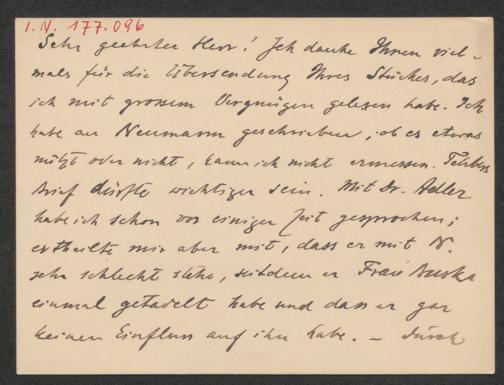 I.N. 177.096
Sehr geehrter Herr! Ich danke Ihnen viel-
mals für die Übersendung Ihres Stückes, das
ich mit grossem Vergnügen gelesen habe. Ich
habe an Neumann geschrieben, ob es etwas
nützt oder nicht, kann ich nicht ermessen.
Brief dürfte wichtiger sein. Mit Dr. Adler
habe ich schon vor einiger Zeit gesprochen;
er theilte mir aber mit, dass er mit N.
sehr schlecht stehe, seitdem er Frau
einmal getadelt habe und dass er gar
keinen Einfluss auf ihn habe. – Durch